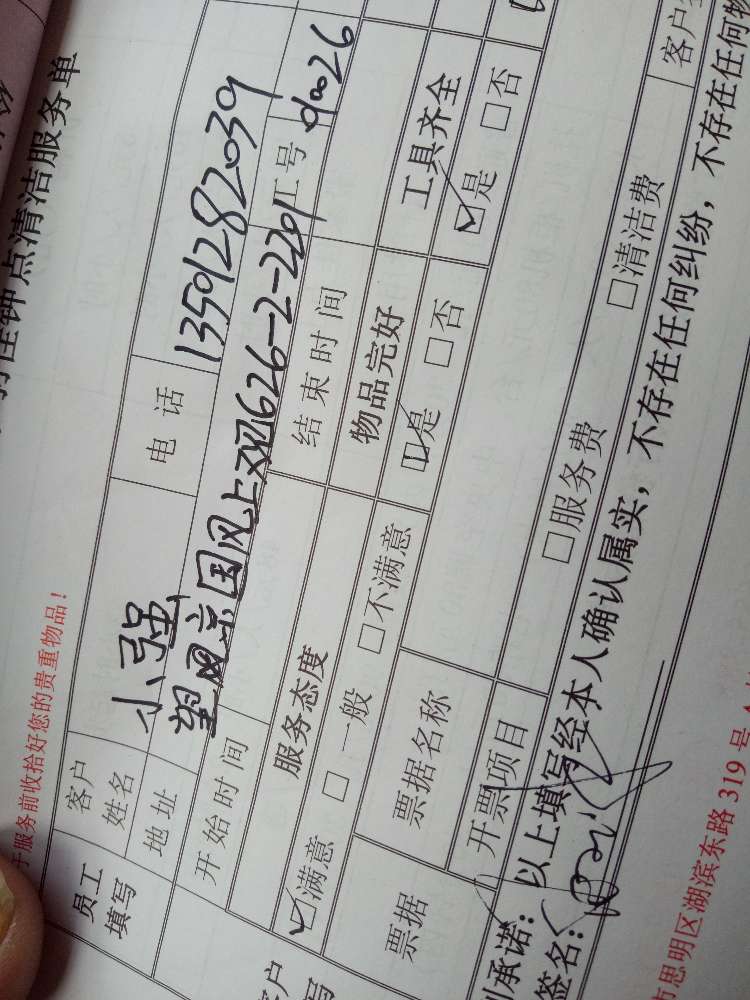 钟点清洁服务单
于服务前收拾好您的贵重物品！
员工填写 客户姓名 小强 电话 13509282039
地址 望风京国风上观626-2-2201
开始时间 结束时间 工号 90026
服务态度 物品完好 工具齐全
☑满意 □一般 □不满意 ☑是 □否 ☑是 □否
票据 票据名称
开票项目 □服务费 □清洁费
承诺：以上填写经本人确认属实，不存在任何纠纷，不存在任何物
签名：
思明区湖滨东路319号